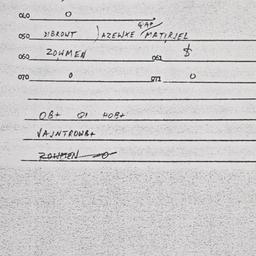 060 0
050 DIBROUT AZEWKE MATIRJEL
GAP
060 ZOWMEN 061 $
070 0 071 0
OB+ 01 HOB+
VAJNTROWB+
ZOWMEN 0